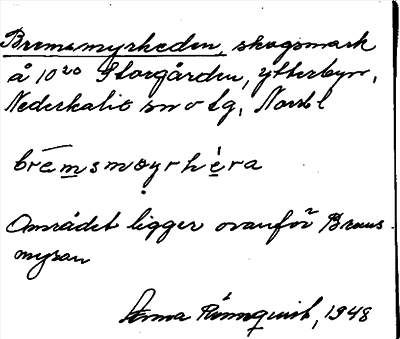 Bremsmyrheden, skogsmark
å 10²⁰ Storgården, Ytterbyn,
Nederkalix sn o tg, Norrb l
brēmsmøyrhèra
Området ligger ovanför Brems-
myran
Anna Rönnquist, 1948